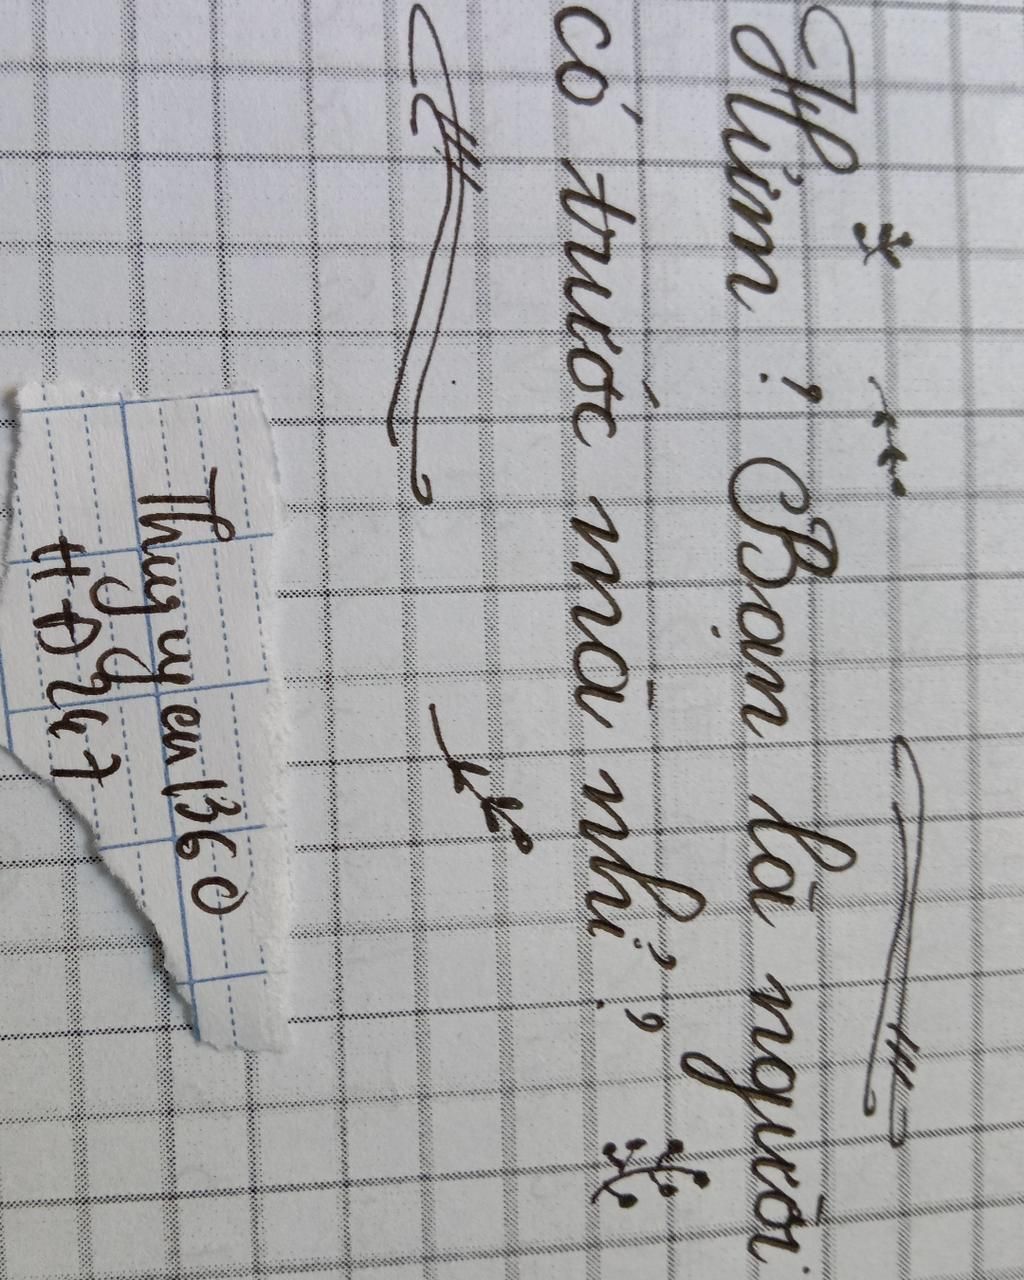 Hưm? Bạn là người
có trước mà nhỉ?
Thuyuyen1360
HĐ247